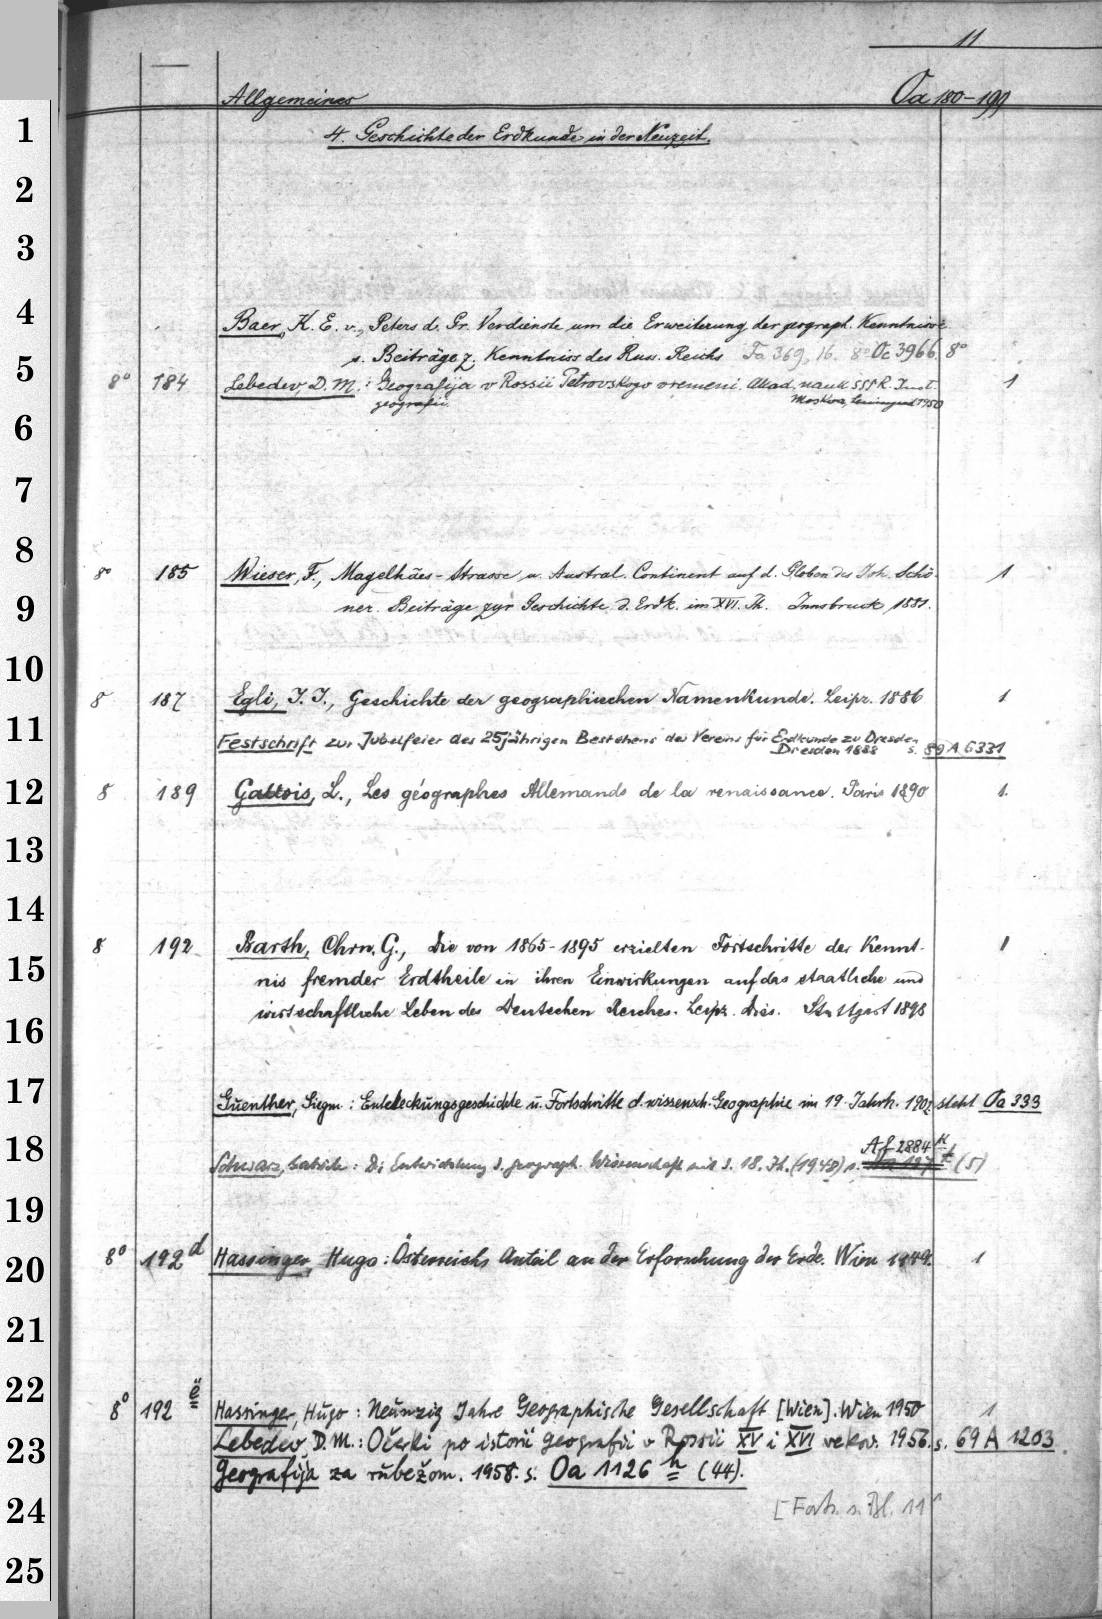 11
Allgemeines Oa 180-199
4. Geschichte der Erdkunde in der Neuzeit.
Baer, K. E. v., Peters d. Gr. Verdienste um die Erweiterung der geograph. Kenntnisse
s. Beiträge z. Kenntniss des Russ. Reichs Fa 369, 16. 8° Oc 3966, 8°
8° 184 Lebedev, D. M.: Geografija v Rossii Petrovskogo vremeni. Akad. nauk SSSR. Inst. 1
geografii. Moskva, Leningrad 1950
8° 185 Wieser, F., Magelhães-Strasse u. Austral. Continent auf d. Globen des Joh. Schö- 1
ner. Beiträge zur Geschichte d. Erdk. im XVI. Jh. Innsbruck, 1881.
8 187 Egli, J. J., Geschichte der geographischen Namenkunde. Leipz. 1886 1
Festschrift zur Jubelfeier des 25jährigen Bestehens des Vereins für Erdkunde zu Dresden
Dresden 1888 s. 89 A 6331
8 189 Gallois, L., Les géographes Allemands de la renaissance. Paris 1890 1.
8 192 Barth, Chrn. G., Die von 1865-1895 erzielten Fortschritte der Kennt- 1
nis fremder Erdtheile in ihren Einwirkungen auf das staatliche und
wirtschaftliche Leben des Deutschen Reiches. Leipz. Diss. Stuttgart 1898
Guenther, Siegm.: Entdeckungsgeschichte u. Fortschritte d. wissensch. Geographie im 19. Jahrh. 1902 steht Oa 333
Af 2884
Schwarz, Gabriele: Die Entwicklung d. geograph. Wissenschaft seit d. 18. Jh. (1948) s. (5)
8° 192 d Hassinger, Hugo: Österreichs Anteil an der Erforschung der Erde. Wien 1949. 1
8° 192 e Hassinger, Hugo: Neunzig Jahre Geographische Gesellschaft [Wien]. Wien 1950 1
Lebedev, D. M.: Očerki po istorii geografii v Rossii XV i XVI vekov. 1956. s. 69 A 1203
Geografija za rubežom. 1958. s. Oa 1126 h (44).
[Forts. s. Bl. 11a